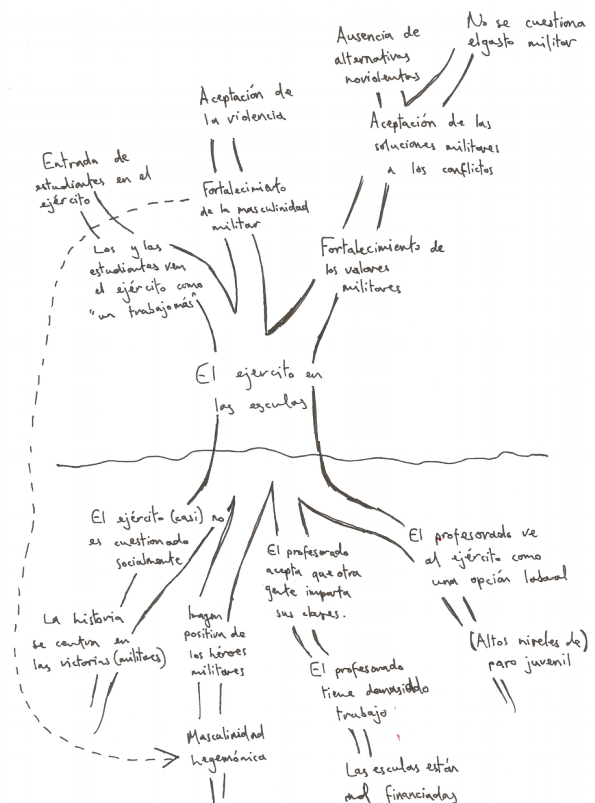 Ausencia de
alternativas
noviolentas
No se cuestiona
el gasto militar
Aceptación de
la violencia
Aceptación de las
soluciones militares
a los conflictos
Entrada de
estudiantes en el
ejército
Fortalecimiento
de la masculinidad
militar
Los y las
estudiantes ven
el ejército como
"un trabajo más"
Fortalecimiento de
los valores
militares
El ejercito en
las esculas
El ejército (casi) no
es cuestionado
socialmente
El profesorado
acepta que otra
gente imparta
sus clases.
El profesorado ve
al ejército como
una opción laboral
La historia
se centra en
las victorias (militares)
Imagen
positiva de
los héroes
militares
El profesorado
tiene demasiado
trabajo
(Altos niveles de)
paro juvenil
Masculinidad
hegemónica
Las esculas están
mal financiadas